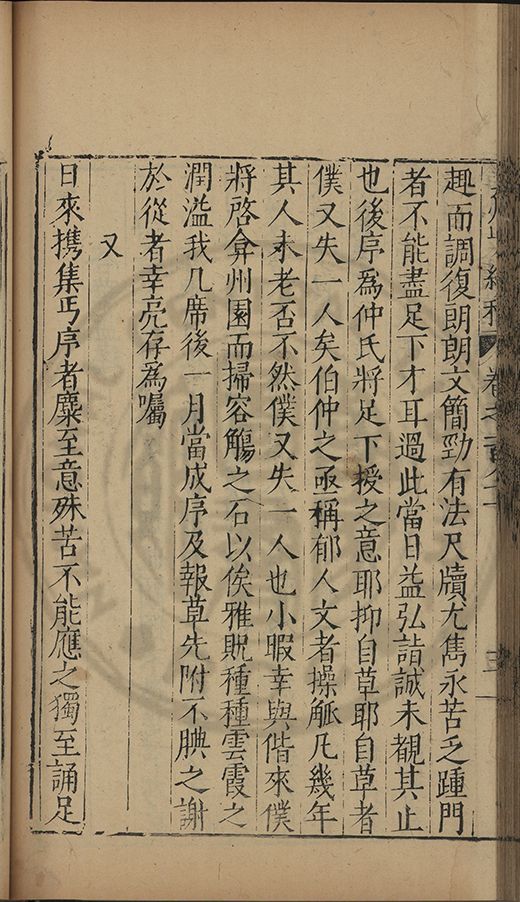 趣而調復朗朗文簡勁有法尺牘尤雋永苦乏踵門
者不能盡足下才耳過此當日益弘詣誠未覩其止
也後序為仲氏將足下授之意耶抑自草耶自草者
僕又失一人矣伯仲之亟稱郁人文者操觚凡幾年
其人未老否不然僕又失一人也小暇幸與偕來僕
將啓弇州園而掃容觴之石以俟雅貺種種雲霞之
潤溢我几席後一月當成序及報草先附不腆之謝
於從者幸亮存為囑
又
日來攜集丐序者麋至意殊苦不能應之獨至誦足